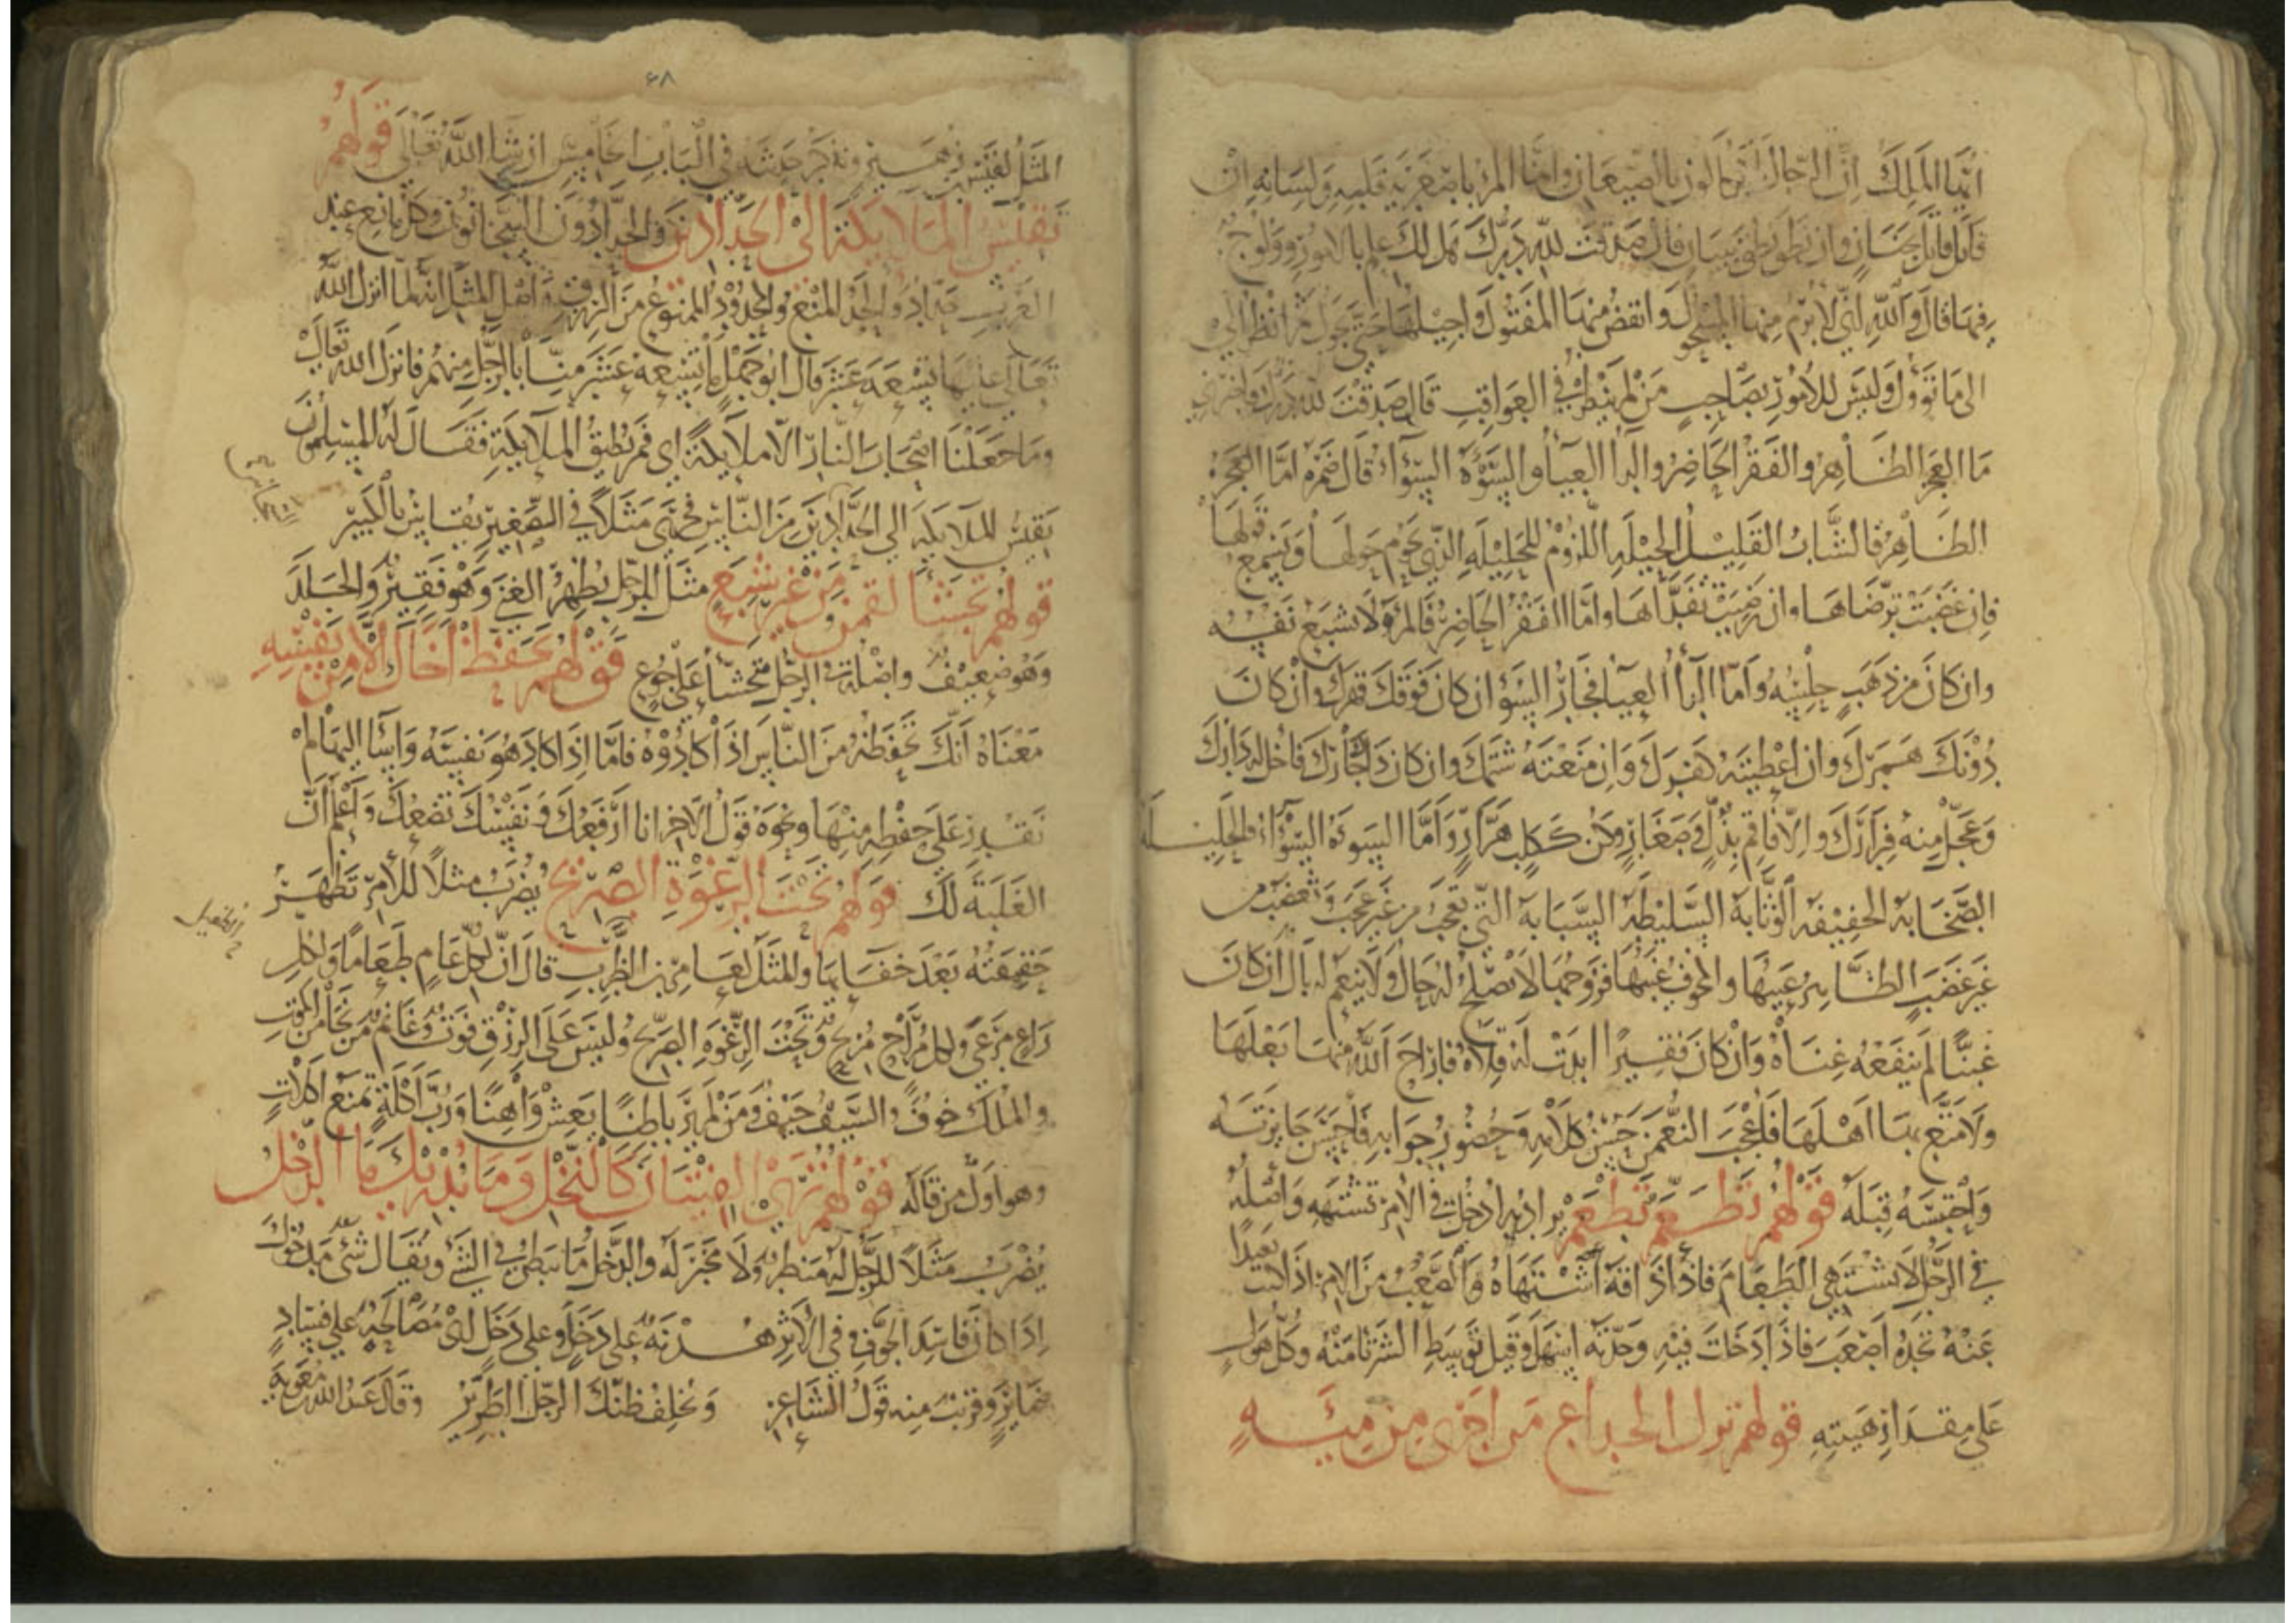 ايها الملك ان الرجال لا تكالون بالصيعان وانما المرء باصغريه قلبه ولسانه ان
قاتل قاتل بجنان وان نطق نطق ببيان قال صدقت لله درك هل لك علم بالامور وولوج
فيها قال والله اني لابرم منها المسحول وانقض منها المفتول واجيلها حتى تجول ثم انظر الى
الى ما تؤول وليس للامور بصاحب من لم ينظر في العواقب قال صدقت لله درك فاخبرني
ما العجز الظاهر والفقر الحاضر والداء العياء والسوءة السوآء قال ضمرة اما العجز
الظاهر فالشاب القليل الحيلة اللزوم للحليلة الذي يحوم حولها ويسمع قولها
فان غضبت ترضاها وان رضيت تفداها واما الفقر الحاضر فالمرء لا تشبع نفسه
وان كان من ذهب حلسه واما الداء العياء فجار السوء ان كان فوقك قهرك وان كان
دونك همزك وان اعطيته كفرك وان منعته شتمك وان كان ذاك جارك فاخل له دارك
وعجل منه فرارك والا فاقم بذل وصغار وكن ككلب هرار واما السوءة السوآء فالحليلة
الصخابة الخفيفة الوثابة السليطة السبابة التي تعجب من غير عجب وتغضب من
غير غضب الظاهر عيبها والمخوف غيبها فزوجها لا تصلح له حال ولا ينعم له بال ان كان
غنيا لم ينفعه غناه وان كان فقيرا ابدت له قلاه فاراح الله منها بعلها
ولا متع بها اهلها فاعجب النعمن حسن كلامه وحضور جوابه فاحسن جايزته
واحتبسه قبله قولهم تطعم تطعم يراد به ادخل في الامر تشتهه واصله
في الرجل لا يشتهي الطعام فاذا ذاقه اشتهاه والصعب من الامر اذا كنت بعيدا
عنه تجده اصعب فاذا دخلت فيه وجدته اسهل وقيل توسط الشر تامنه وكل هول
على مقدار هيبته قولهم ترك الخداع من اجرى من ميه
۶۸
المثل لقيس بن زهير ونذكر حديثه في الباب الخامس ان شا الله تعالى قولهم
تقيس الملايكة الى الحدادين والحدادون السجانون وكل مانع عند
العرب حداد والحد المنع والمحدود الممنوع من الرزق واصل المثل انه لما انزل الله
تعالى عليها تسعة عشر قال ابو جهل ما تسعة عشر منا بالرجل منهم فانزل الله تعالى
وما جعلنا اصحاب النار الا ملايكة اي فمن يطيق الملايكة فقال له المسلمون
تقيس الملايكة الى الحدادين من الناس فجرى مثلا في الصغير يقايس بالكبير
قولهم تجشا لقمن من غير شبع مثل الرجل يظهر الغنى وهو فقير والجلد
وهو ضعيف واصله الرجل تجشا على جوع قولهم يحفظ اخاك الا من نفسه
معناه انك تحفظه من الناس اذا كادوه فاما اذا كاد هو نفسه واسا اليها لم
تقدر على حفظه منها ونحوه قول الاخر انا ارفعك ونفسك تضعك واعلم ان
الغلبة لك قولهم تحت الرغوة الصريح يضرب مثلا للامر تظهر
حقيقته بعد خفايها والمثل لعامر بن الظرب قال ان لكل عام طعاما ولكل
راع مرعى ولكل مراح مريح وتحت الرغوة الصريح وليس على الرزق فوت
والملك خوف والسيف حيف ومن لم ير باطنا يعش واهنا ورب اكلة تمنع اكلات
وهو اول من قاله قولهم ترى الفتيان كالنخل وما يدريك ما الدخل
يضرب مثلا للرجل له منظر ولا مخبر له والدخل ما يبطن في الشي ويقال شي مدخول
اذا كان فاسد الجوف وفي الاثر هدنة على دخل وعلى دخل اي مصالحة على فساد
ضماير وقريب منه قول الشاعر ويخلف ظنك الرجل الطرير وقال عبد الله معوية